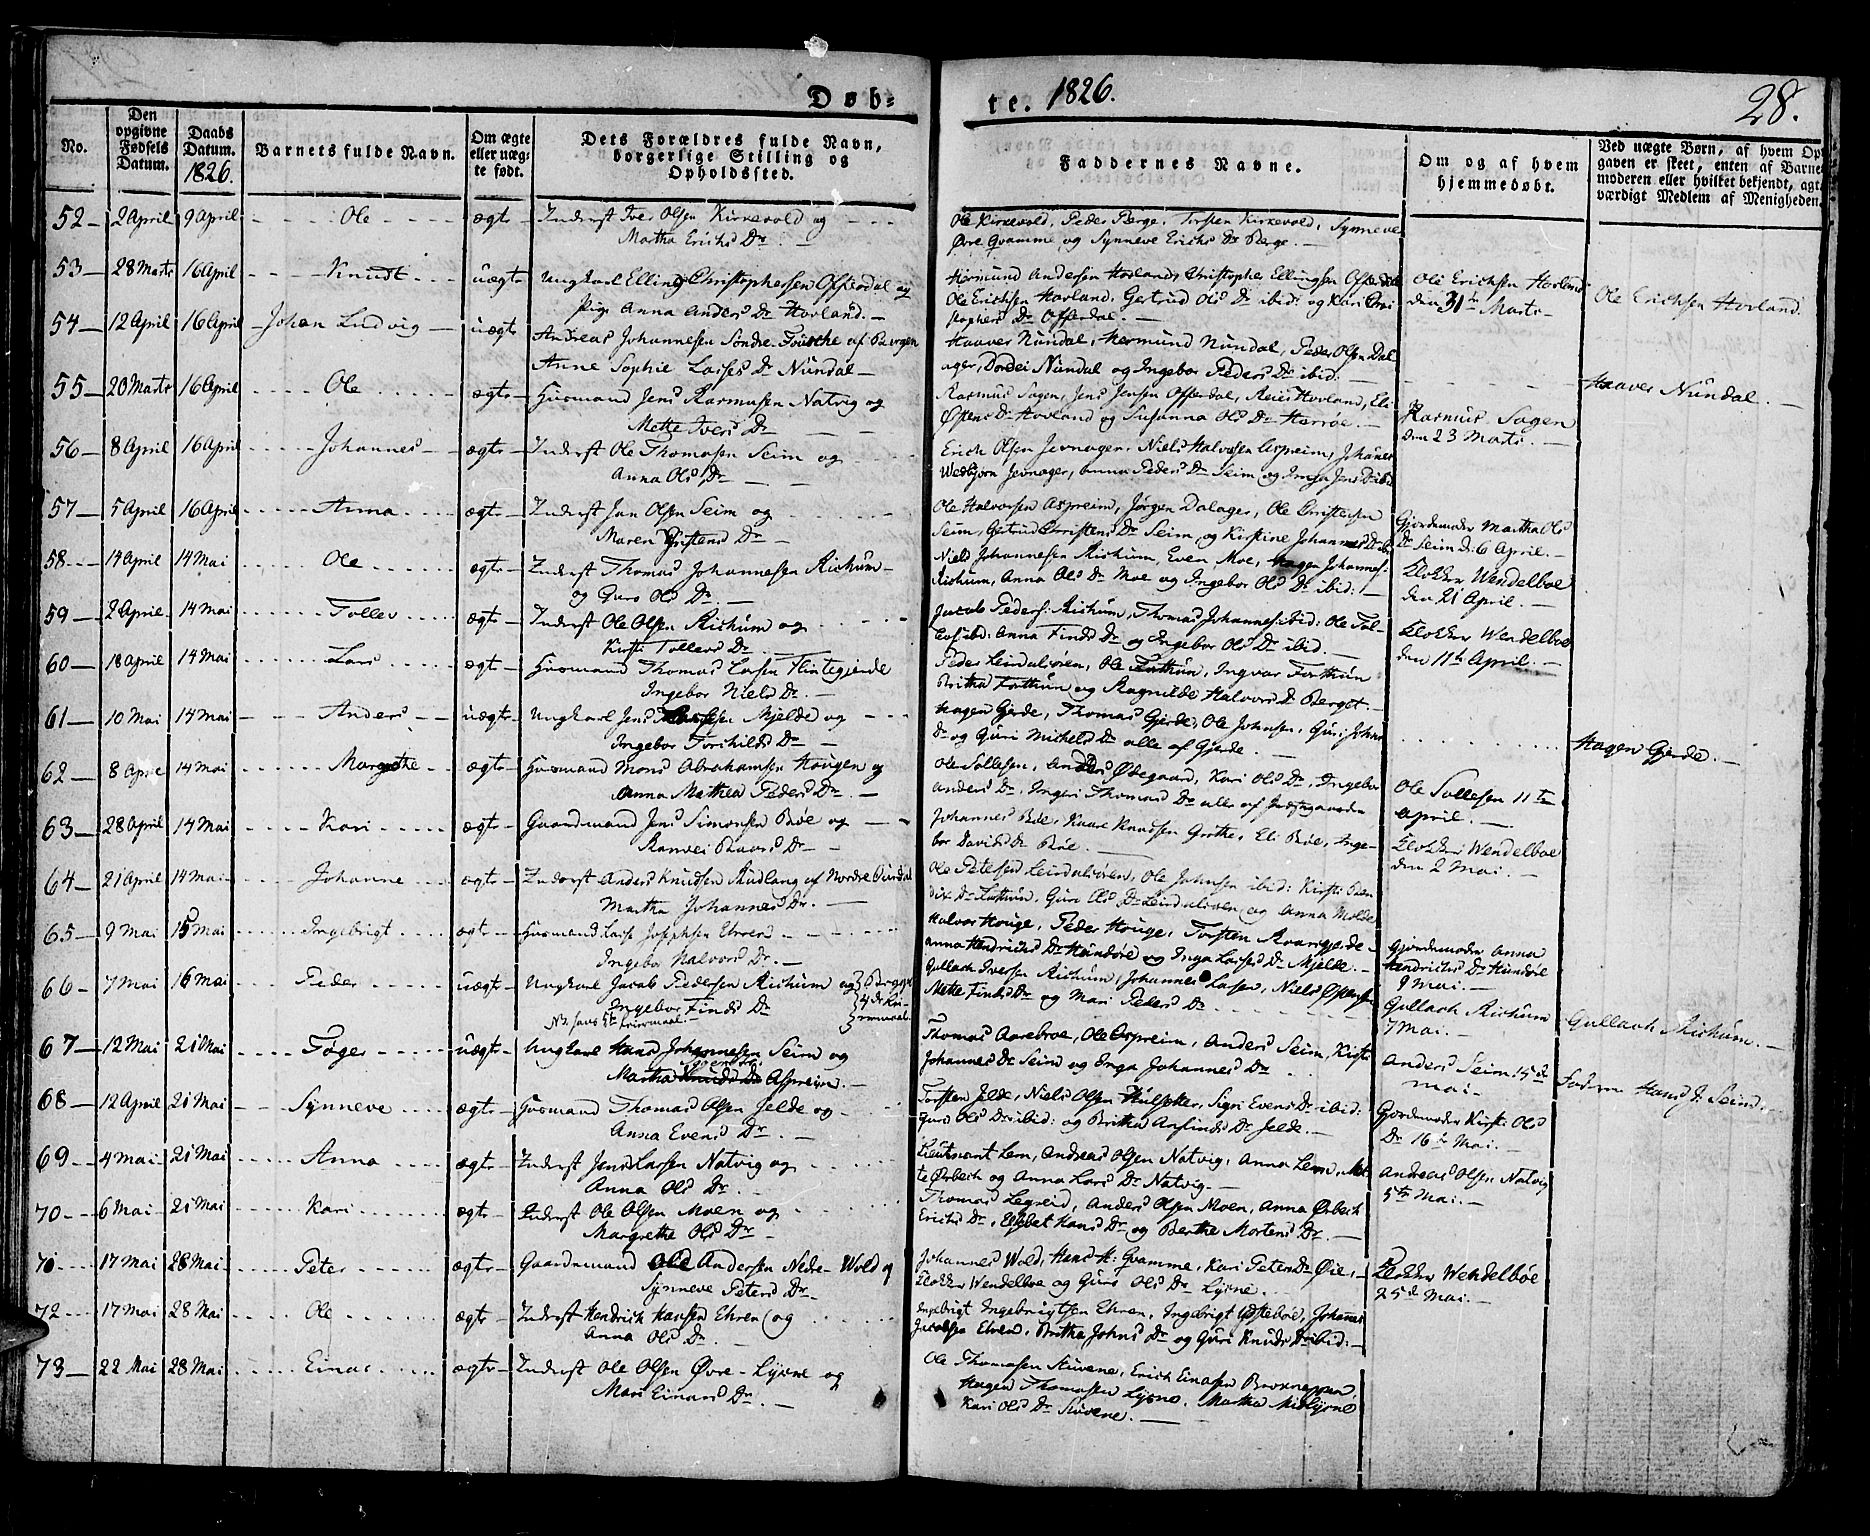 Døb-
te. 1826.
28.
No.
Den opgivne Fødsels Datum.
Daabs Datum. 1826.
Barnets fulde Navn.
Om ægte eller uæg-te født.
Dets Forældres fulde Navn, borgerlige Stilling og Opholdssted.
Faddernes Navne.
Om og af hvem hjemmedøbt.
Ved uægte Børn, af hvem Op-
gaven er skeet, enten af Barne-
moderen eller hvilket bekjendt, agt-
værdigt Medlem af Menigheden.
52 2 April 9 April Ole ægte Inderst Iver Olsen Kirkevold og
Martha Erichs Dr.
Ole Kirkevold, Peder Berge, Torsten Kirkevold, Synneve
Øvre Qvamme og Synneve Erichs Dr Berge.
53 28 Marts 16 April Knudt uægte Ungkarl Elling Christophersen Offerdal og
Pige Anna Anders Dr Hovland.
Hermund Andersen Hovland, Christopher Ellingsen Offerdal
Ole Erichsen Hovland, Gertrud Ols Dr ibid: og Kari Chri
stophers Dr Offerdal.
Ole Erichsen Hovland
den 31te Marts
Ole Erichsen Hovland.
54 12 April 16 April Johan Ludvig uægte Andreas Johannesen Søndre af Bergen
Anne Sophie Lasses Dr Nundal
Haaver Nundal, Hermund Nundal, Peder Olsen Dal
ager, Dordei Nundal og Ingebor Peders Dr ibid.
Haaver Nundal.
55 20 Marts 16 April Ole ægte Husmand Jens Rasmusen Natvig og
Mette Ivers Dr
Rasmus Sagen, Jens Jensen Offerdal, Hovland, Eli
Østens Dr Hovland og Susanna Ols Dr
Rasmus Sagen
den 23 Marts.
56 8 April 16 April Johannes ægte Inderst Ole Thomasen Seim og
Anna Ols Dr
Erich Olsen Jevnager, Niels Halvorsen Aspreim, Johanes
Vedbjorn Jevnager, Anna Peders Dr Seim og Inga Jens Dr ibid
57 5 April 16 April Anna ægte Inderst Jon Olsen Seim og
Maren Dr
Ole Halvorsen Aspreim, Jørgen Dalager, Ole Christensen
Seim, Gertrud Christens Dr Seim og Kirstine Johannes Dr ibid
Gjordemoder Martha Ols
Dr Seim d: 6 April.
58 14 April 14 Mai Ole ægte Inderst Thomas Johannesen Rishum
og Guro Ols Dr
Niels Johannesen Rishum, Even Moe, Hagen Johannes:
Rishum, Anna Ols Dr Moe og Ingebor Ols Dr ibid:
Klokker Wendelboe
den 21 April.
59 2 April 14 Mai Tollev ægte Inderst Ole Olsen Rishum og
Kirsti Tollevs Dr
Jacob Peders: Rishum, Thomas Johannes: ibid: Ole Tol-
levs: ibid: Anna Finds Dr og Ingebor Ols Dr ibid.
Klokker Wendelboe
den 11te April.
60 18 April 14 Mai Lars ægte Husmand Thomas Larsen Flintegjerde
Ingebor Niels Dr.
Peder Leirdalsøren, Ole Forthun, Ingvar Forthun
Britha Forthun og Ragnilde Halvors Dr Berget.
61 10 Mai 14 Mai Anders uægte Ungkarl Jens Mjelde og
Ingebor Torchilds Dr
Hagen Gjerde, Thomas Gjerde, Ole Johnsen, Guri Johns
Dr og Guri Michels Dr alle af Gjerde.
Hagen Gjerde.
62 8 April 14 Mai Margrethe ægte Husmand Mons Abrahamsen Hougen og
Anna Mathea Peders Dr.
Ole Sollesen, Anders Ødegaard, Kari Ols Dr, Ingebor
Anders Dr, Ingeri Thomas Dr alle af
Ole Sollesen 11te
April.
63 28 April 14 Mai Kari ægte Gaardmand Jens Simonsen Bøe og
Ranvei Dr
Johannes Bøe, Kaare Knudsen Grothe, Eli Bøe, Inge-
bor Davids Dr Bøe.
Klokker Wendelboe
den 2 Mai.
64 21 April 14 Mai Johanne ægte Inderst Anders Knudsen af Nordre
Martha Johannes Dr.
Ole Petersen Leirdalsøren, Ole Johnsen ibid: Kirsti Ben
dix Dr Forthun, Guro Ols Dr Leirdalsøren og Anna Molde
65 9 Mai 15 Mai Ingebrigt ægte Husmand Lasse Josephsen Ehren
Ingebor Halvors Dr.
Halvor Houge, Peder Houge, Torsten Kvamgjerde
Anna Hendrichs Dr Hundøle og Inga Lasses Dr Mjelde.
Gjordemoder Anna
Hendrichs Dr Hundøle
9 Mai.
66 7 Mai 16 Mai Peder uægte Ungkarl Jacob Pedersen Rishum og
Ingebor Finds Dr
Gullach Iversen Rishum, Johannes Larsen, Niels Østensen
Mette Finds Dr og Mari Peders Dr
Gullach Rishum
7 Mai.
Gullach Rishum.
67 12 Mai 21 Mai Tøger uægte Ungkarl Hans Johannesen Seim og
Martha Aspreim.
Thomas Aarebroe, Ole Aspreim, Anders Seim, Kirsti
Johannes Dr Seim og Inga Johannes Dr
Anders Seim 15de
Mai
Faderen Hans J. Seim
68 12 April 21 Mai Synneve ægte Husmand Thomas Olsen Jelde og
Anna Evens Dr.
Torsten Jelde, Niels Olsen Hulseker, Sigri Evens Dr ibid:
Guro Ols Dr ibid: og Britha Arfinds Dr Jelde.
Gjordemoder Kirsti Ols
Dr 16de Mai.
69 4 Mai 21 Mai Anna ægte Inderst Jens Larsen Natvig og
Anna Ols Dr.
Lieutnant Lem, Andreas Olsen Natvig, Anna Lem, Met
te Ørbech og Anna Lars Dr Natvig.
Andreas Olsen Natvig
5te Mai.
70 6 Mai 21 Mai Kari ægte Inderst Ole Olsen Moen og
Margrethe Ols Dr
Thomas Legreid, Anders Olsen Moen, Anna Ørbech
Erichs Dr, Elsebet Hans Dr og Berthe Mortens Dr.
71 17 Mai 28 Mai Peter ægte Gaardmand Ole Andersen Nedre-Wold og
Synneve Peters Dr.
Johannes Wold, Hans H: Qvamme, Kari Peters Dr Øie,
Klokker Wendelboe og Guro Ols Dr Lysne.
Klokker Wendelboe
25de Mai.
72 17 Mai 28 Mai Ole ægte Inderst Hendrich Hansen Ehren og
Anna Ols Dr.
Ingebrigt Ingebrigtsen Ehren, Ingebrigt Johannes
Jacobsen Ehren, Britha Johns Dr og Guri Knuds Dr ibid:
73 22 Mai 28 Mai Einar ægte Inderst Ole Olsen Øvre-Lysne og
Mari Einars Dr.
Ole Thomasen Stuvene, Erich Einarsen
Hagen Thomasen Lysne, Martha Lysne
Kari Ols Dr Stuvene.